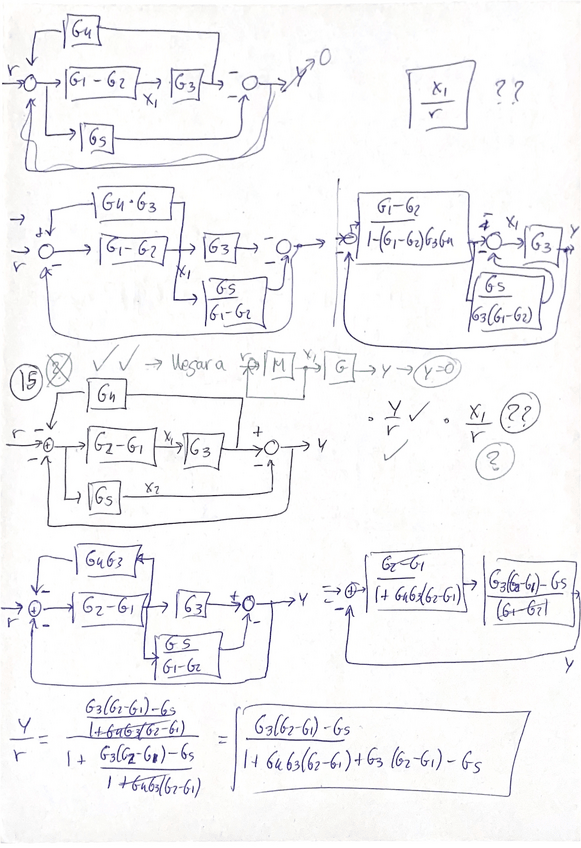 G4
r G1-G2 X1 G3 - - Y 0
G5
X1/r ??
G4·G3
r + - G1-G2 X1 G3 - -
G5/(G1-G2)
(G1-G2)/(1-(G1-G2)G3G4) X1 G3 Y
G5/(G3(G1-G2))
15 → llegar a r M X1 G → Y → Y=0
G4
r - + - G2-G1 X1 G3 + - Y
G5 X2
· Y/r ✓ · X1/r ??
✓ ?
G4G3
r - + - G2-G1 G3 + - Y
G5/(G1-G2)
+ - (G2-G1)/(1+G4G3(G2-G1)) (G3(G2-G1)-G5)/(G1-G2)
Y
Y/r = ((G3(G2-G1)-G5)/(1+G4G3(G2-G1)))/(1+(G3(G2-G1)-G5)/(1+G4G3(G2-G1))) = (G3(G2-G1)-G5)/(1+G4G3(G2-G1)+G3(G2-G1)-G5)